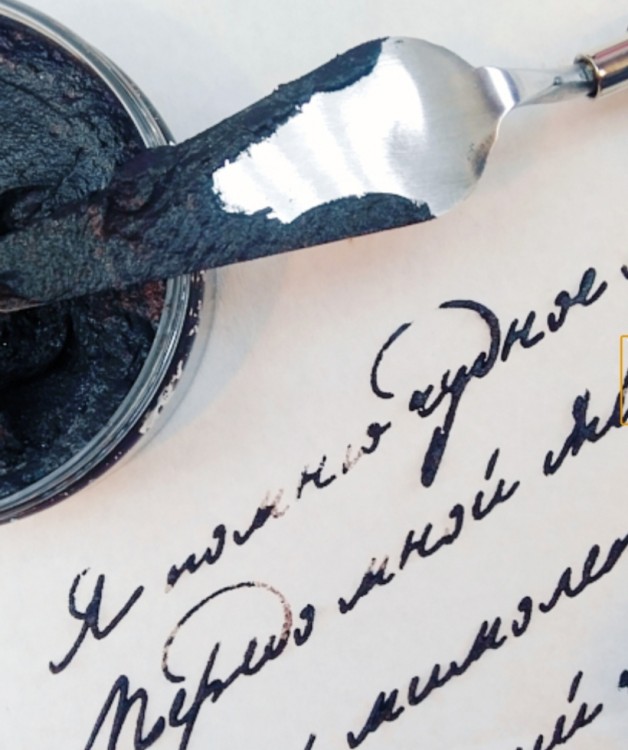 Я помню чудное
Передо мной яви
мимоле
ий